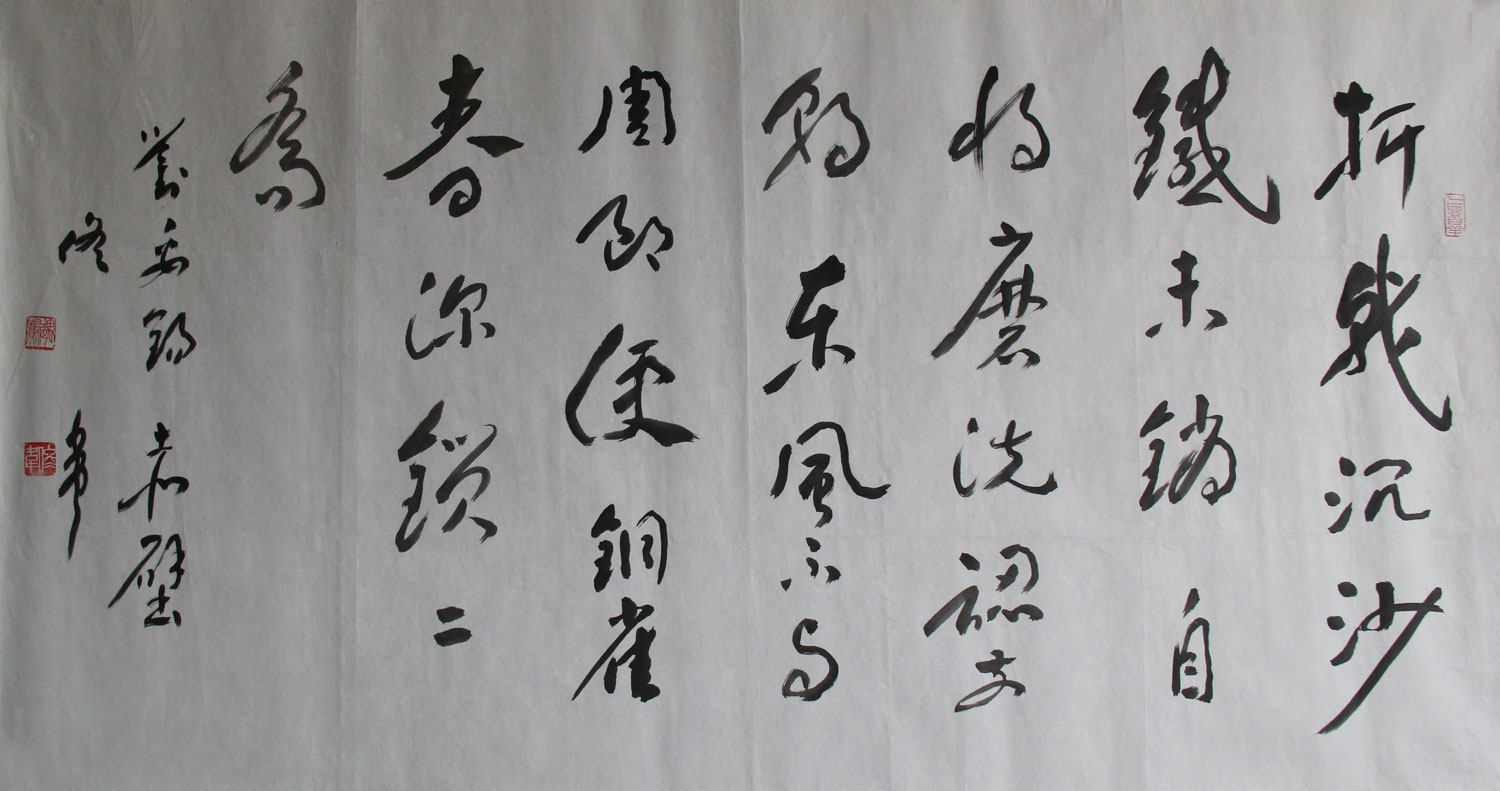 折戟沉沙
鐵未銷自
将磨洗認前
朝東風不与
周郎便銅雀
春深鎖二
喬
劉禹錫 赤壁
佟韋